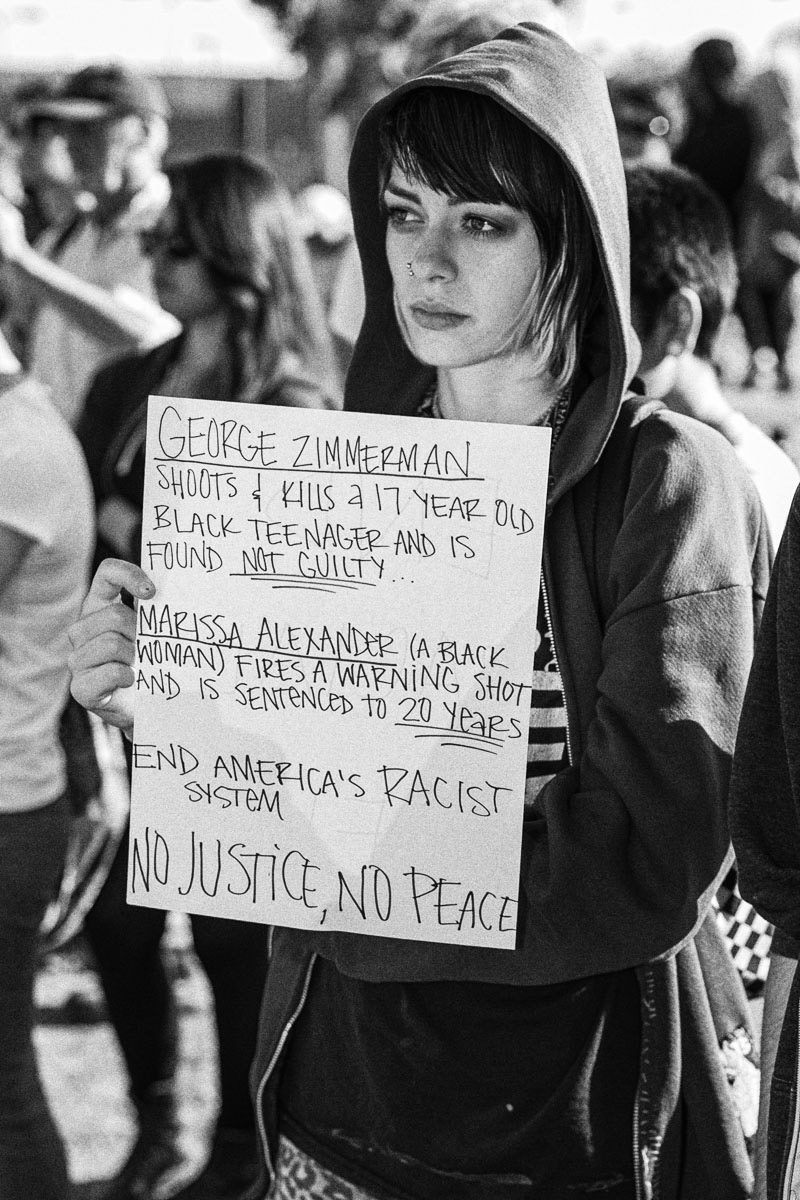 GEORGE ZIMMERMAN
SHOOTS & KILLS a 17 YEAR OLD
BLACK TEENAGER AND IS
FOUND NOT GUILTY...
MARISSA ALEXANDER (A BLACK
WOMAN) FIRES A WARNING SHOT
AND IS SENTENCED to 20 YEaRS
END AMERICA'S RACIST
SYSTEM
NO JUSTiCE, NO PEACE